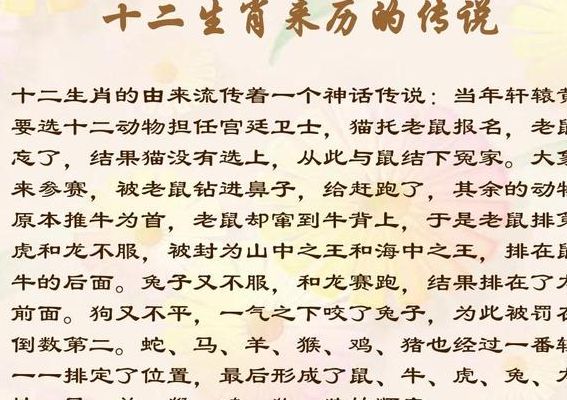 十二生肖来历的传说
十二生肖的由来流传着一个神话传说：当年轩辕黄
要选十二动物担任宫廷卫士，猫托老鼠报名，老鼠
忘了，结果猫没有选上，从此与鼠结下冤家。大象
来参赛，被老鼠钻进鼻子，给赶跑了，其余的动物
原本推牛为首，老鼠却窜到牛背上，于是老鼠排第
虎和龙不服，被封为山中之王和海中之王，排在鼠
牛的后面。兔子又不服，和龙赛跑，结果排在了龙
前面。狗又不平，一气之下咬了兔子，为此被罚在
倒数第二。蛇、马、羊、猴、鸡、猪也经过一番较
一一排定了位置，最后形成了鼠、牛、虎、兔、龙